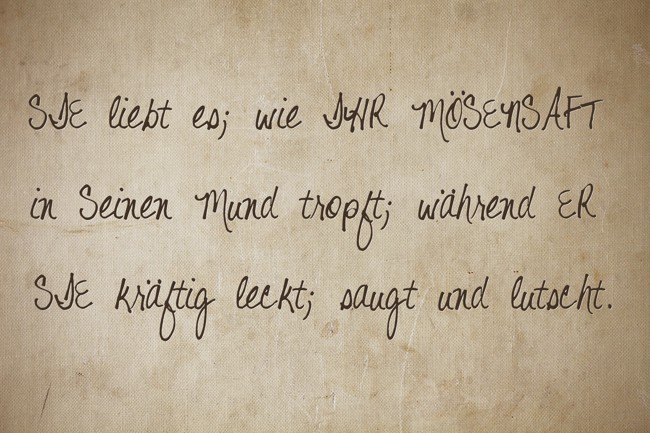 SIE liebt es; wie IHR MÖSENSAFT
in Seinen Mund tropft; während ER
SIE kräftig leckt; saugt und lutscht.